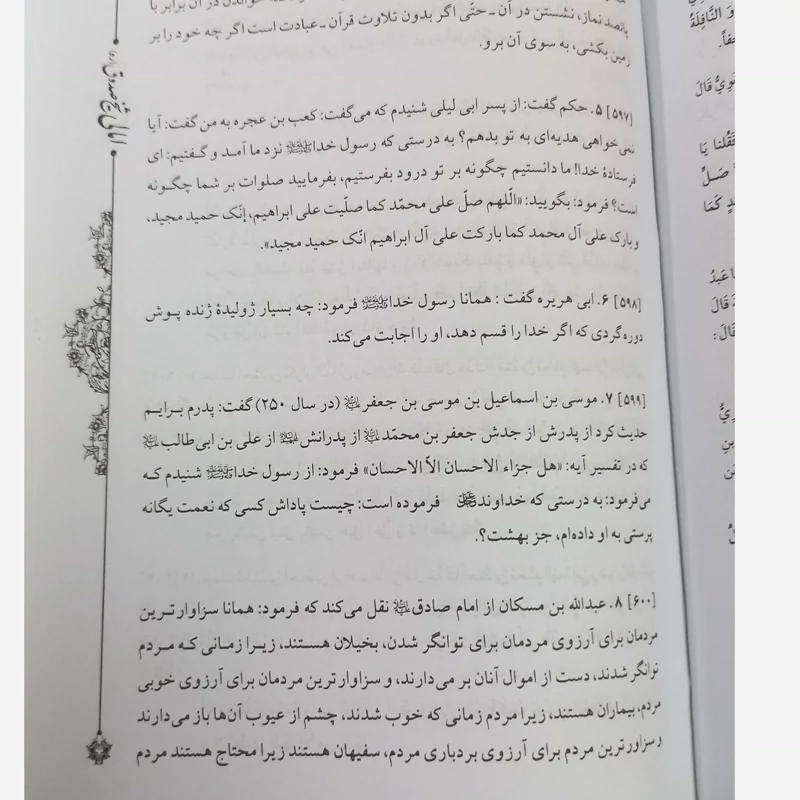 پانصد نماز، نشستن در آن ـ حتّی اگر بدون تلاوت قرآن ـ عبادت است اگر چه خود را بر
زمین بکشی، به سوی آن برو.
[۵۹۷] ۵. حکم گفت: از پسر ابی لیلی شنیدم که می‌گفت: کعب بن عجره به من گفت: آیا
نمی‌خواهی هدیه‌ای به تو بدهم؟ به درستی که رسول خداﷺ نزد ما آمد و گفتیم: ای
فرستادهٔ خدا! ما دانستیم چگونه بر تو درود بفرستیم، بفرمایید صلوات بر شما چگونه
است؟ فرمود: بگویید: «الّلهم صلّ علی محمّد کما صلّیت علی ابراهیم، إنّک حمید مجید،
و بارک علی آل محمد کما بارکت علی آل ابراهیم انّک حمید مجید».
[۵۹۸] ۶. ابی هریره گفت : همانا رسول خداﷺ فرمود: چه بسیار ژولیدهٔ ژنده پوش
دوره‌گردی که اگر خدا را قسم دهد، او را اجابت می‌کند.
[۵۹۹] ۷. موسی بن اسماعیل بن موسی بن جعفر (در سال ۲۵۰) گفت: پدرم برایم
حدیث کرد از پدرش از جدش جعفر بن محمّد از پدرانش از علی بن ابی‌طالب
که در تفسیر آیه: «هل جزاء الاحسان الاّ الاحسان» فرمود: از رسول خداﷺ شنیدم که
می‌فرمود: به درستی که خداوند فرموده است: چیست پاداش کسی که نعمت یگانه
پرستی به او داده‌ام، جز بهشت؟.
[۶۰۰] ۸. عبدالله بن مسکان از امام صادق نقل می‌کند که فرمود: همانا سزاوارترین
مردمان برای آرزوی مردمان برای توانگر شدن، بخیلان هستند، زیرا زمانی که مردم
توانگر شدند، دست از اموال آنان بر می‌دارند، و سزاوارترین مردمان برای آرزوی خوبی
مردم، بیماران هستند، زیرا مردم زمانی که خوب شدند، چشم از عیوب آن‌ها باز می‌دارند
و سزاورترین مردم برای آرزوی بردباری مردم، سفیهان هستند زیرا محتاج هستند مردم
امالی شیخ صدوق
وَ النَّافِلَةُ
قَالَ
فَقُلْنَا يَا
صَلِّ
كَمَا
عَبْدُ
قَالَ
قَالَ:
بْنِ